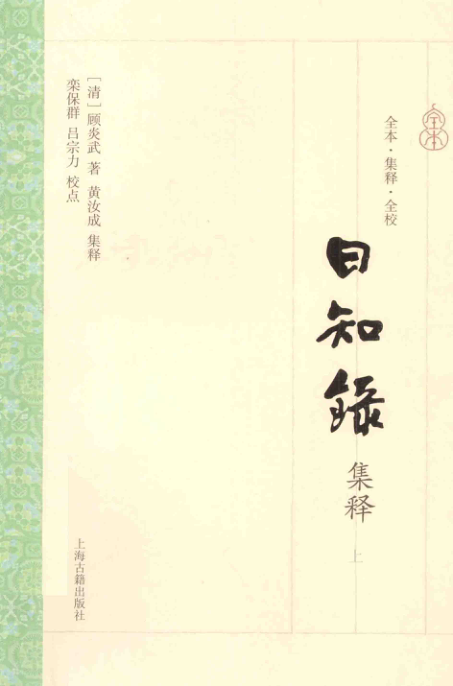 全本
全本·集释·全校
日知録
集释
上
［清］顾炎武 著 黄汝成 集释
栾保群 吕宗力 校点
上海古籍出版社